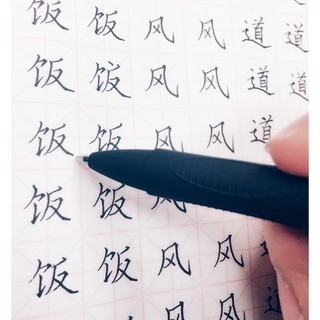 饭饭风风道道
饭饭风风道道
饭饭风风道
饭饭
饭饭风风
风风